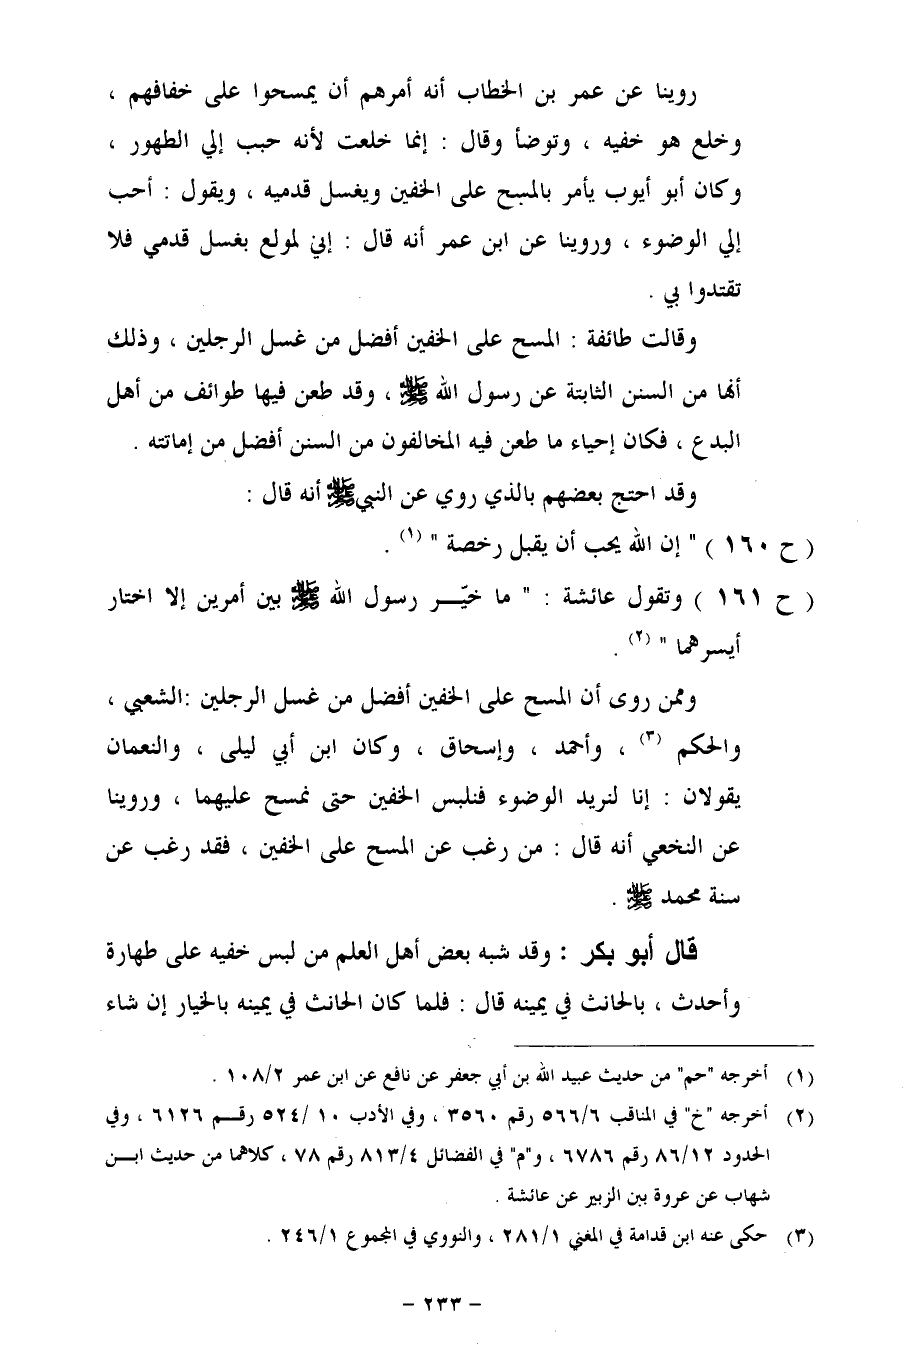 روينا عن عمر بن الخطاب أنه أمرهم أن يمسحوا على خفافهم ،
وخلع هو خفيه ، وتوضأ وقال : إنما خلعت لأنه حبب إلي الطهور ،
وكان أبو أيوب يأمر بالمسح على الخفين ويغسل قدميه ، ويقول : أحب
إلي الوضوء ، وروينا عن ابن عمر أنه قال : إني لمولع بغسل قدمي فلا
تقتدوا بي .
وقالت طائفة : المسح على الخفين أفضل من غسل الرجلين ، وذلك
أنها من السنن الثابتة عن رسول الله ﷺ ، وقد طعن فيها طوائف من أهل
البدع ، فكان إحياء ما طعن فيه المخالفون من السنن أفضل من إماتته .
وقد احتج بعضهم بالذي روي عن النبي ﷺ أنه قال :
( ح ١٦٠ ) " إن الله يحب أن يقبل رخصة " (١) .
( ح ١٦١ ) وتقول عائشة : " ما خيّـــر رسول الله ﷺ بين أمرين إلا اختار
أيسرهما " (٢) .
وممن روى أن المسح على الخفين أفضل من غسل الرجلين :الشعبي ،
والحكم (٣) ، وأحمد ، وإسحاق ، وكان ابن أبي ليلى ، والنعمان
يقولان : إنا لنريد الوضوء فنلبس الخفين حتى نمسح عليهما ، وروينا
عن النخعي أنه قال : من رغب عن المسح على الخفين ، فقد رغب عن
سنة محمد ﷺ .
قال أبو بكر : وقد شبه بعض أهل العلم من لبس خفيه على طهارة
وأحدث ، بالحانث في يمينه قال : فلما كان الحانث في يمينه بالخيار إن شاء
(١) أخرجه "حم" من حديث عبيد الله بن أبي جعفر عن نافع عن ابن عمر ١٠٨/٢ .
(٢) أخرجه "خ" في المناقب ٥٦٦/٦ رقم ٣٥٦٠ ، وفي الأدب ١٠ /٥٢٤ رقـــم ٦١٢٦ ، وفي
الحدود ٨٦/١٢ رقم ٦٧٨٦ ، و"م" في الفضائل ٨١٣/٤ رقم ٧٨ ، كلاهما من حديث ابـــن
شهاب عن عروة بين الزبير عن عائشة .
(٣) حكى عنه ابن قدامة في المغني ٢٨١/١ ، والنووي في المجموع ٢٤٦/١ .
- ٢٣٣ -